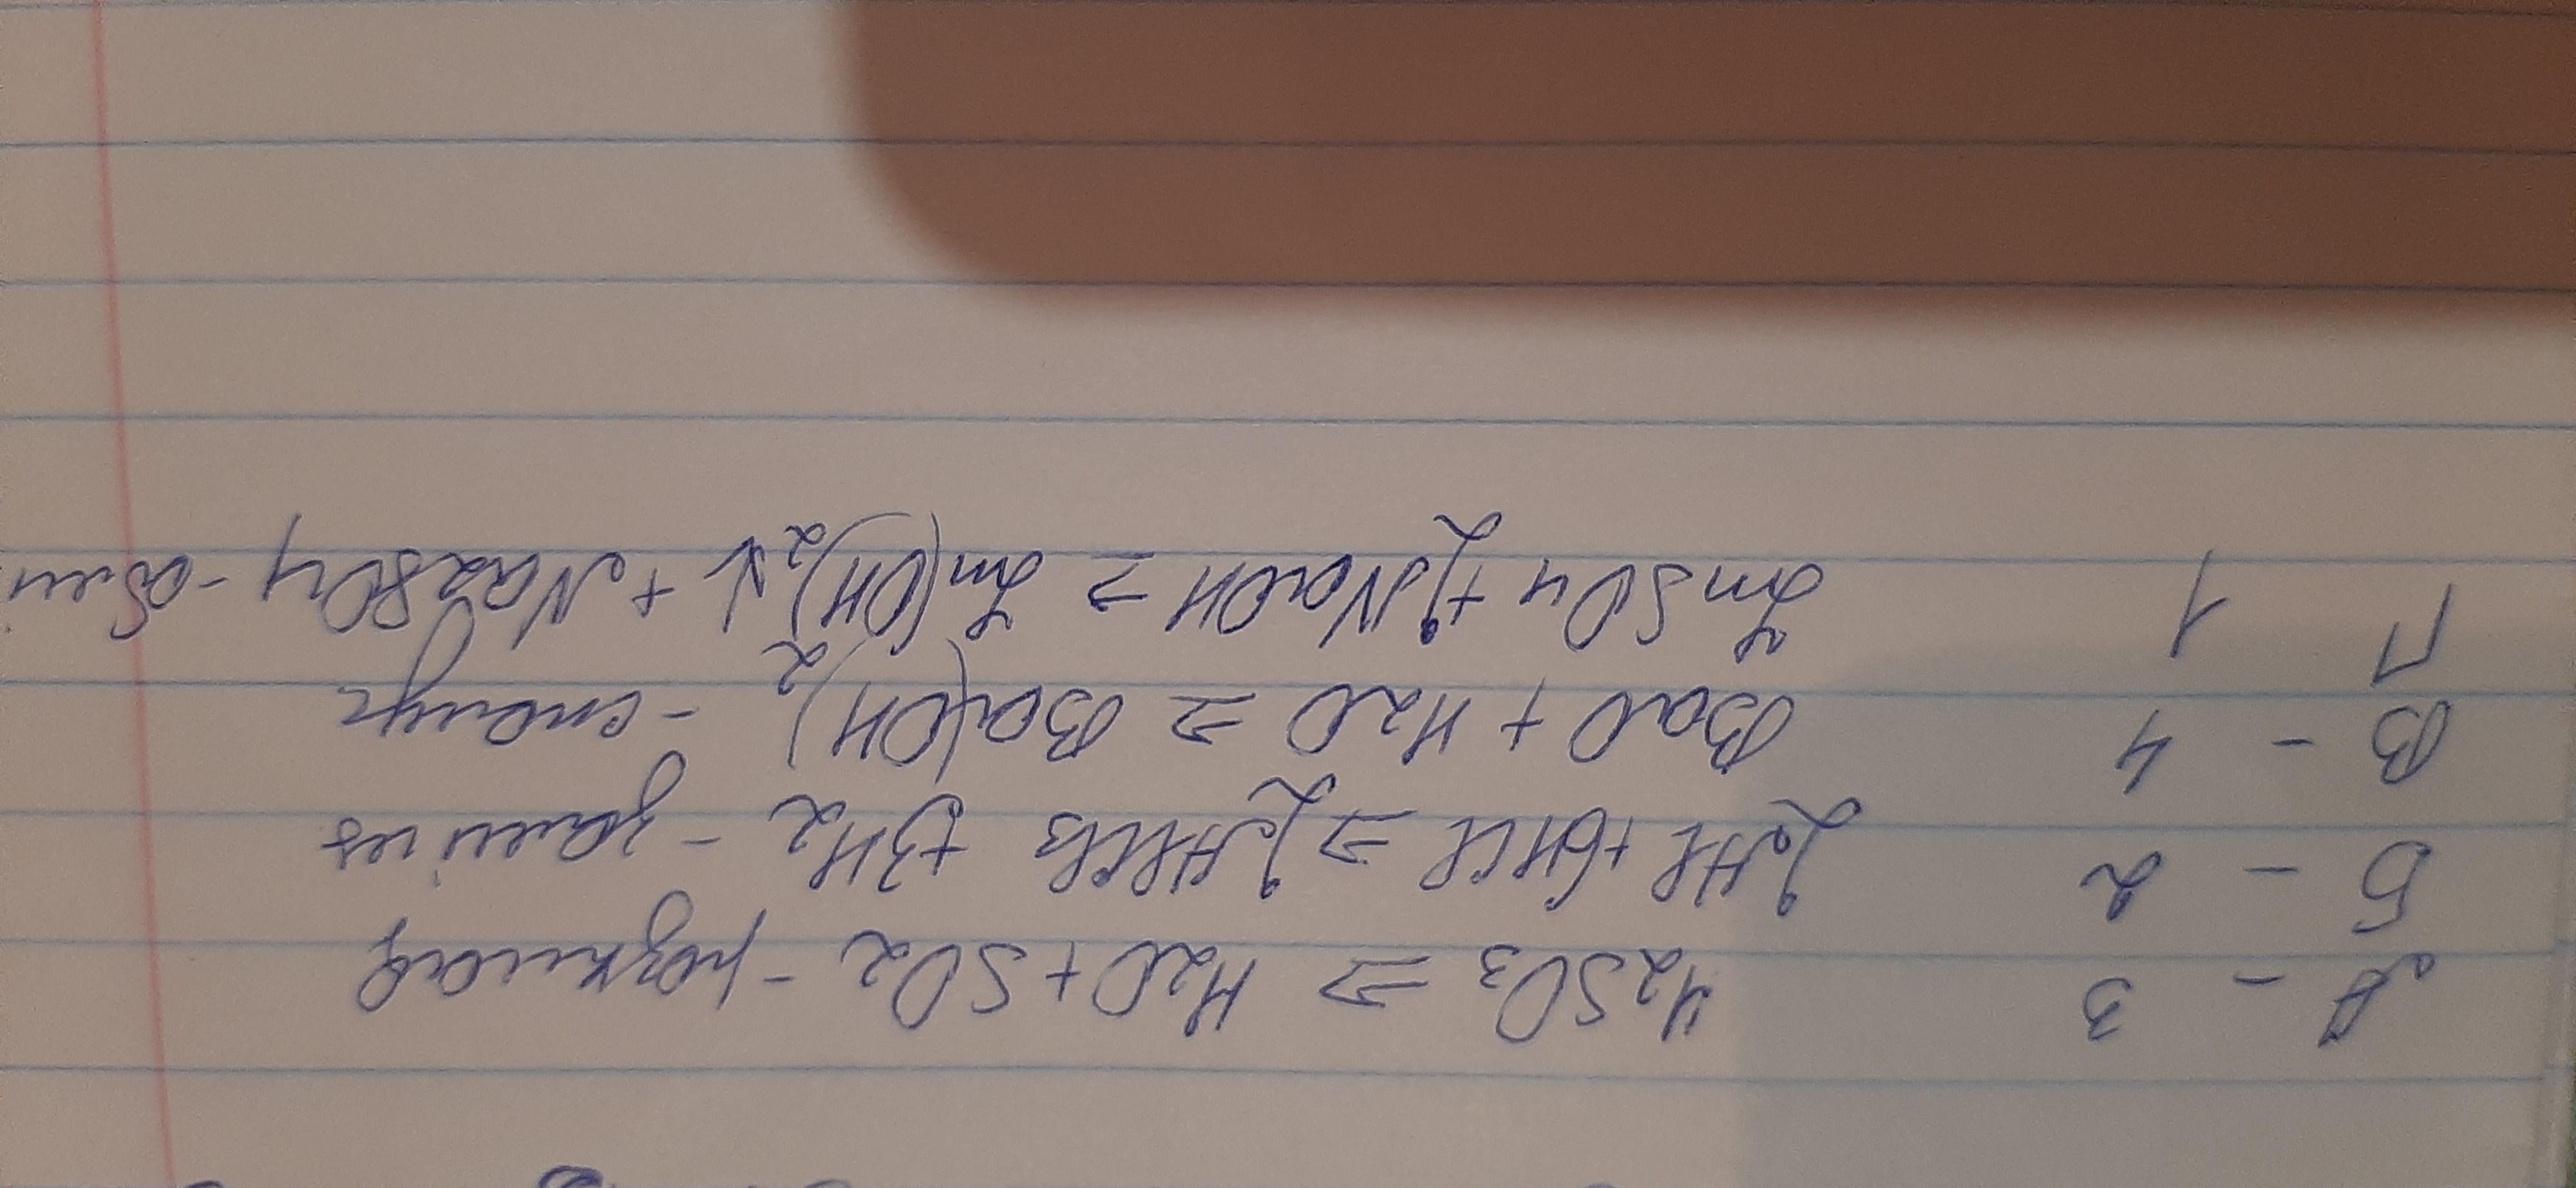 А - 3 H2SO3 => H2O + SO2 - розклад
Б - 2 2Al + 6HCl => 2AlCl3 + 3H2 - заміщ
В - 4 BaO + H2O => Ba(OH)2 - сполуч
Г 1 ZnSO4 + 2NaOH => Zn(OH)2↓ + Na2SO4 - обмі